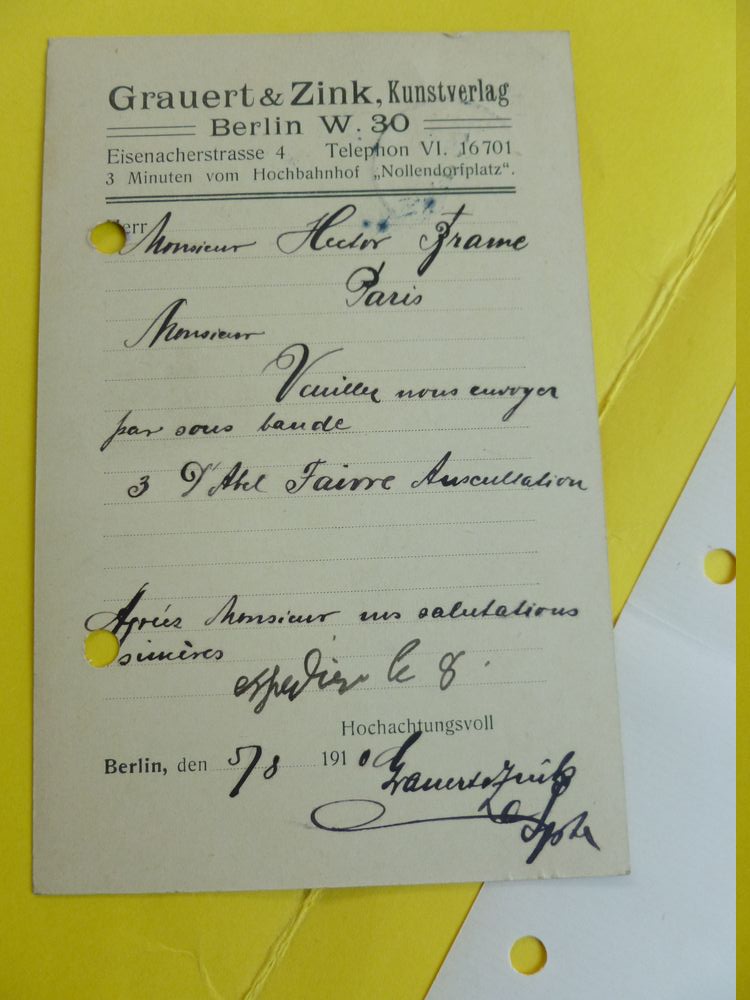 Grauert & Zink, Kunstverlag
Berlin W. 30
Eisenacherstrasse 4 Telephon VI. 16701
3 Minuten vom Hochbahnhof „Nollendorfplatz“.
Herr Monsieur Hector Brame
Paris
Monsieur
Veuillez nous envoyer
par sous bande
3 D'Abel Faivre Auscultation
Agréez Monsieur nos salutations
sincères
expédier le 8.
Hochachtungsvoll
Berlin, den 5/8 1910 Grauert & Zink